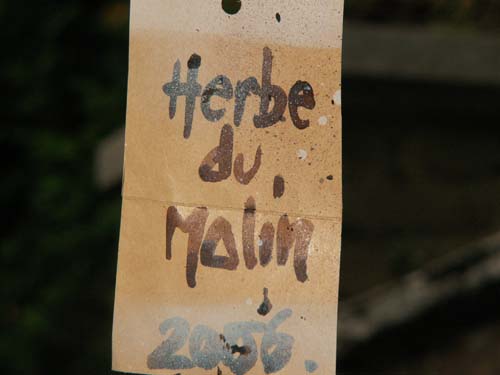 Herbe
du
Malin
2006.